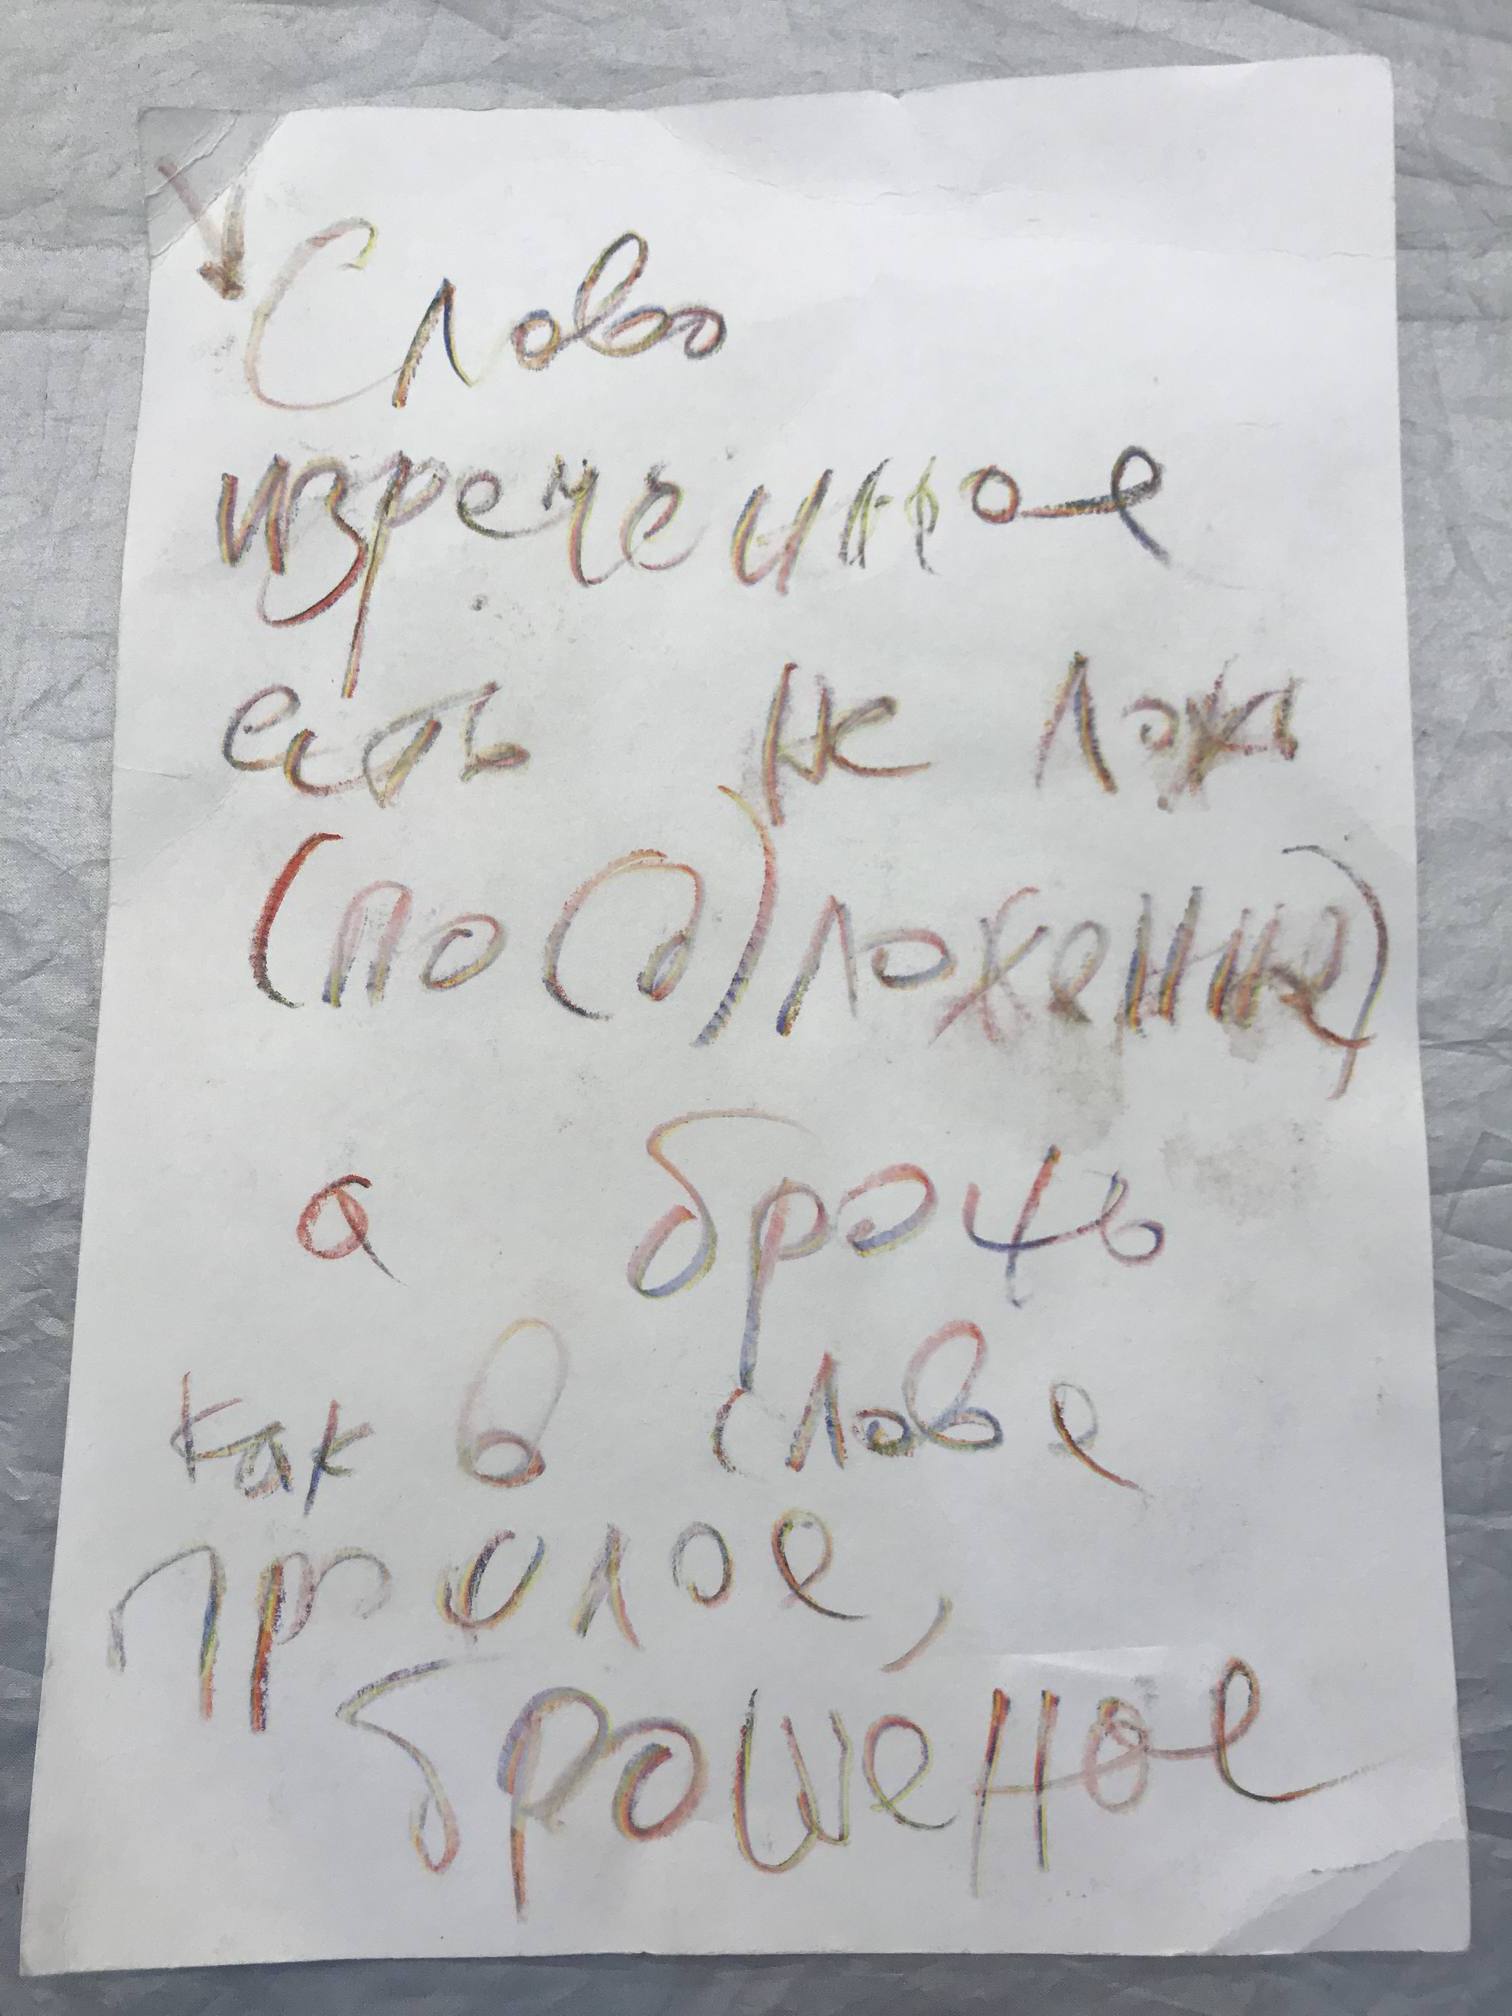 Слово
изреченное
есть не ложь
(по(д)ложение)
а брошь
как в слове
прошлое,
брошеное